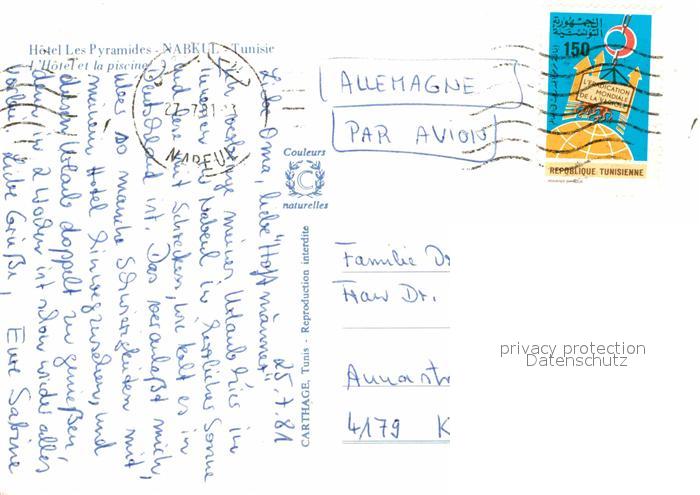 Hôtel Les Pyramides - NABEUL - Tunisie
L'Hôtel et la piscine
25.7.81
Liebe Oma, liebe "Hoffmänner"
Ich verbringe meinen Urlaub hier in
Nabeul in herrlicher Sonne
und mit Schrecken, wie kalt es in
Deutschland ist. Das veranlaßt mich,
über so manche Schwierigkeiten mit
meinem Hotel hinwegzusehen, und
diesen Urlaub doppelt zu genießen,
denn in 2 Wochen ist schon wieder alles
vorbei. Liebe Grüße, Eure Sabine
Couleurs
C
naturelles
CARTHAGE, Tunis - Reproduction interdite
NABEUL
ALLEMAGNE
PAR AVION
150
L'ERADICATION
MONDIALE
DE LA VARIOLE
REPUBLIQUE TUNISIENNE
الجمهورية
التونسية
Familie Dr
Frau Dr.
Annastr
4179 K
privacy protection
Datenschutz